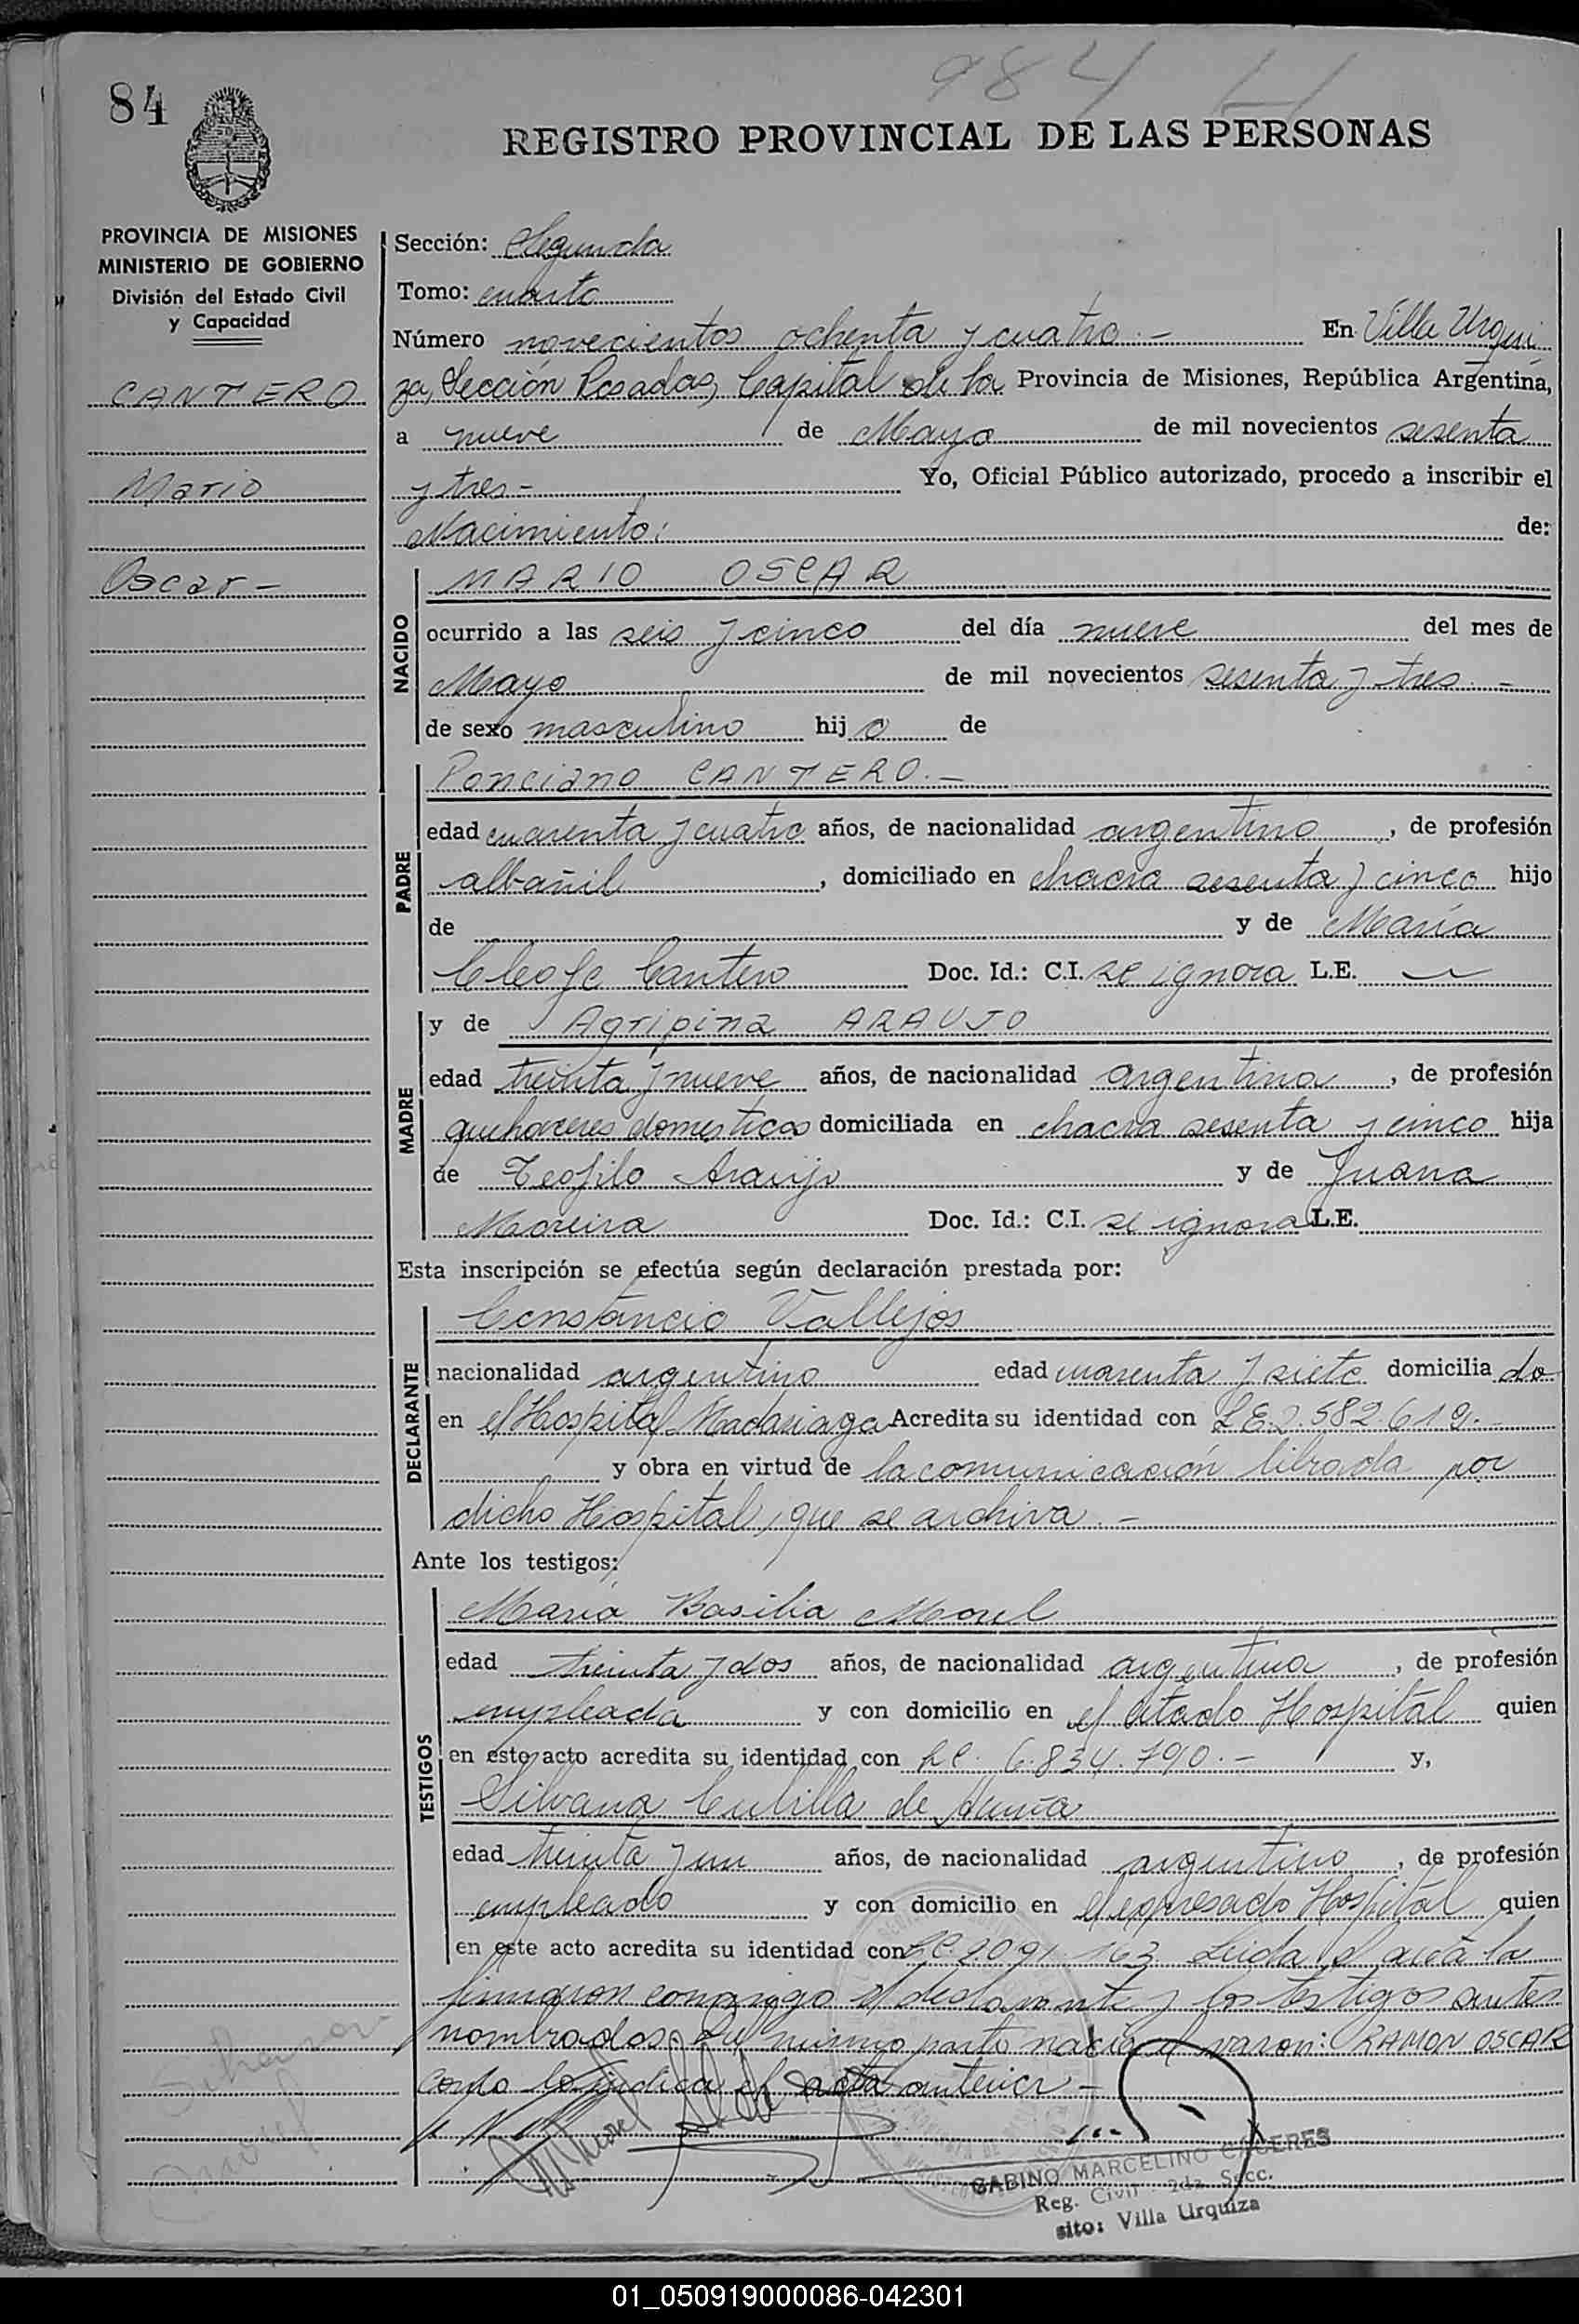 984
84
REGISTRO PROVINCIAL DE LAS PERSONAS
PROVINCIA DE MISIONES
MINISTERIO DE GOBIERNO
División del Estado Civil
y Capacidad
CANTERO
Mario
Oscar -
Sección: Segunda
Tomo: cuarto
Número novecientos ochenta y cuatro.- En Villa Urqui
za, Sección Posadas, Capital de la Provincia de Misiones, República Argentina,
a nueve de Mayo de mil novecientos sesenta
y tres - Yo, Oficial Público autorizado, procedo a inscribir el
Nacimiento: de:
NACIDO
MARIO OSCAR
ocurrido a las seis y cinco del día nueve del mes de
Mayo de mil novecientos sesenta y tres.-
de sexo masculino hijo de
PADRE
Ponciano CANTERO.-
edad cuarenta y cuatro años, de nacionalidad argentino, de profesión
albañil, domiciliado en chacra sesenta y cinco hijo
de y de María
Cleofe Cantero Doc. Id.: C.I. se ignora L.E.
MADRE
y de Agripina ARAUJO
edad treinta y nueve años, de nacionalidad argentina, de profesión
quehaceres domesticos domiciliada en chacra sesenta y cinco hija
de Teofilo Araujo y de Juana
Moreira Doc. Id.: C.I. se ignora L.E.
Esta inscripción se efectúa según declaración prestada por:
DECLARANTE
Constancio Vallejos
nacionalidad argentino edad cuarenta y siete domiciliado
en el Hospital Madariaga Acredita su identidad con L.E. 2.582.619.-
y obra en virtud de la comunicación librada por
dicho Hospital, que se archiva.-
Ante los testigos:
TESTIGOS
María Basilia Morel
edad treinta y dos años, de nacionalidad argentina, de profesión
empleada y con domicilio en el citado Hospital quien
en este acto acredita su identidad con L.C. 6.834.790.- y,
Silvana Cubilla de
edad treinta y un años, de nacionalidad argentino, de profesión
empleado y con domicilio en el expresado Hospital quien
en este acto acredita su identidad con L.C. 2.091.163. Leida el acta la
firmaron conmigo el declarante y los testigos antes
nombrados. Del mismo parto nació el varon: RAMON OSCAR
como lo indica el acta anterior -
GABINO MARCELINO CACERES
Reg. Civil 2da Secc.
sito: Villa Urquiza
01_050919000086-042301